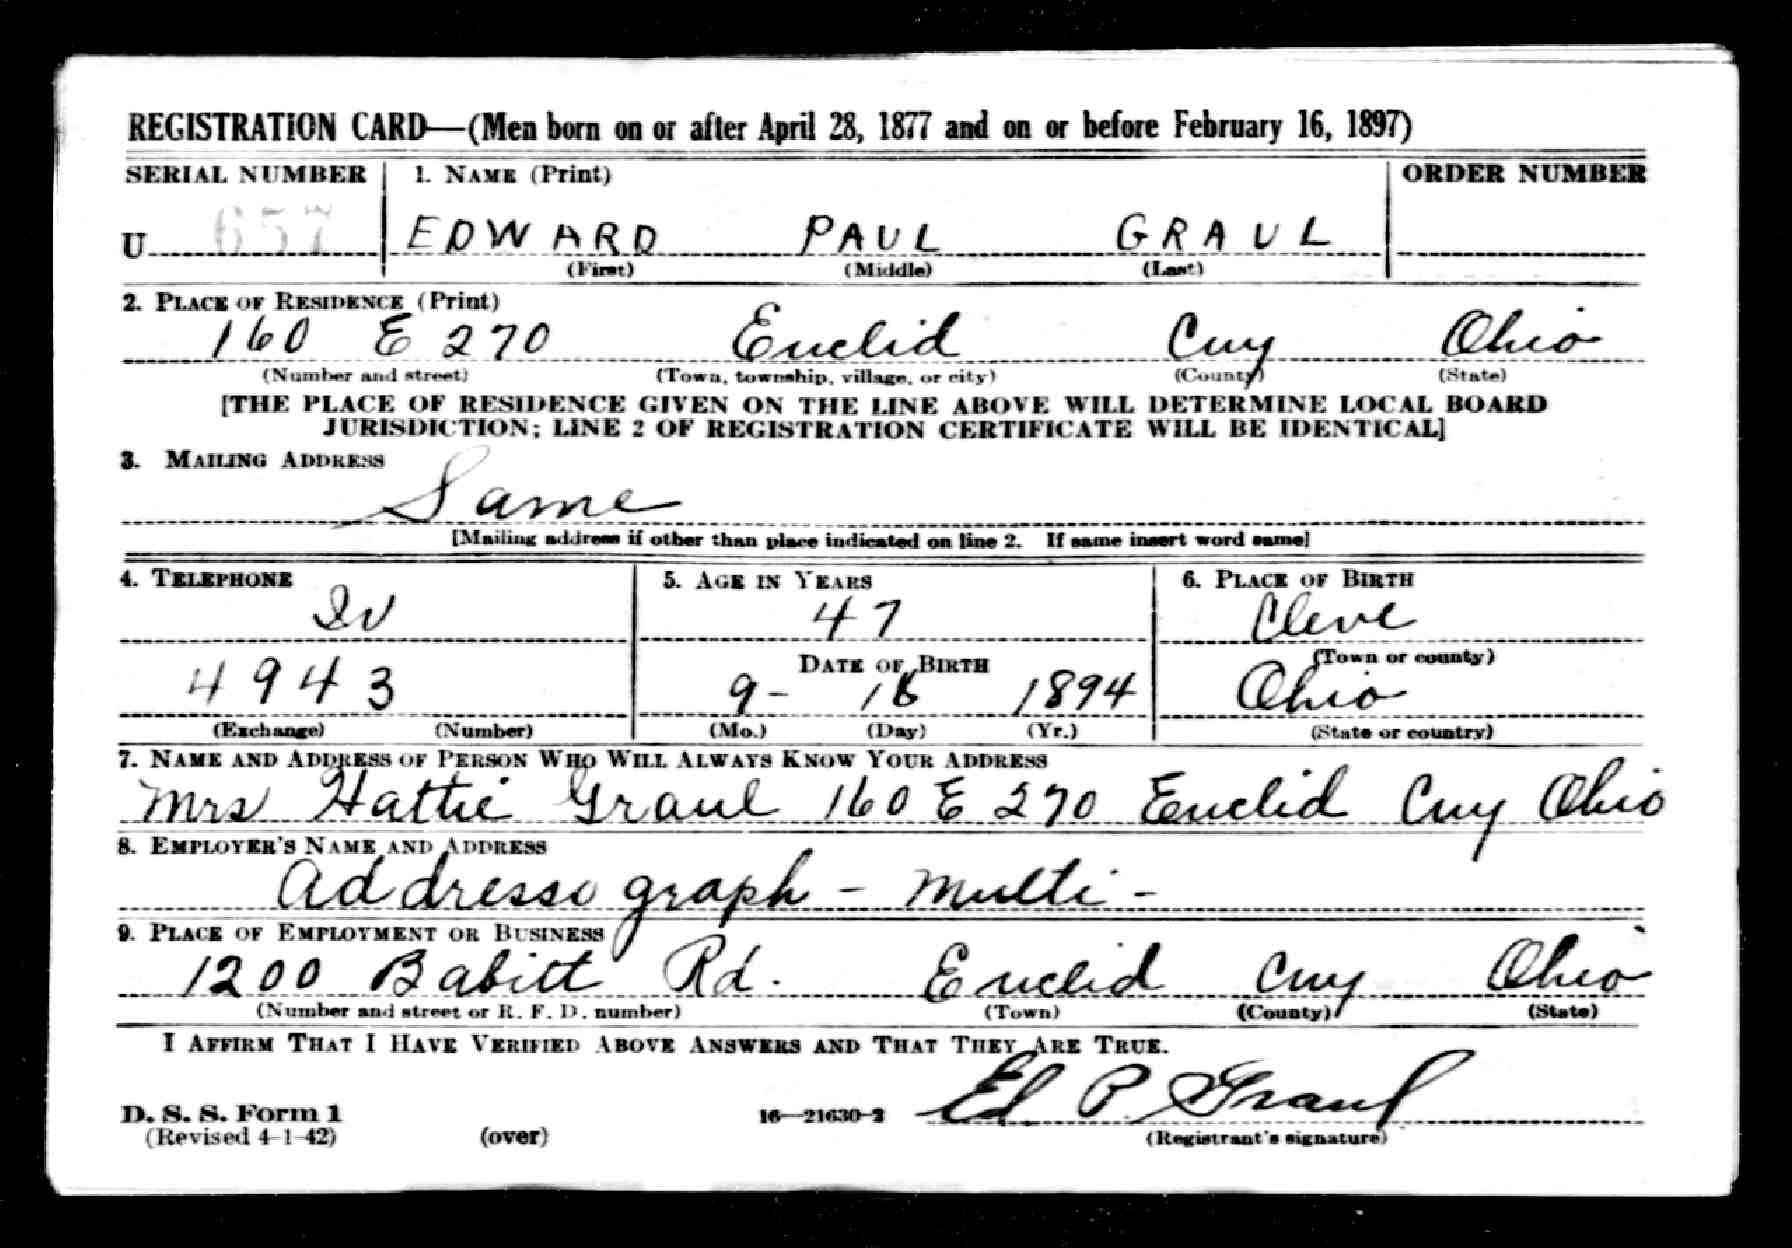 REGISTRATION CARD—(Men born on or after April 28, 1877 and on or before February 16, 1897)
SERIAL NUMBER 1. NAME (Print) ORDER NUMBER
U 657 EDWARD PAUL GRAUL
(First) (Middle) (Last)
2. PLACE OF RESIDENCE (Print)
160 E 270 Euclid Cuy Ohio
(Number and street) (Town, township, village, or city) (County) (State)
[THE PLACE OF RESIDENCE GIVEN ON THE LINE ABOVE WILL DETERMINE LOCAL BOARD
JURISDICTION; LINE 2 OF REGISTRATION CERTIFICATE WILL BE IDENTICAL]
3. MAILING ADDRESS
Same
[Mailing address if other than place indicated on line 2. If same insert word same]
4. TELEPHONE 5. AGE IN YEARS 6. PLACE OF BIRTH
47 Cleve
DATE OF BIRTH (Town or county)
4943 9- 1894 Ohio
(Exchange) (Number) (Mo.) (Day) (Yr.) (State or country)
7. NAME AND ADDRESS OF PERSON WHO WILL ALWAYS KNOW YOUR ADDRESS
Mrs Hattie Graul 160 E 270 Euclid Cuy Ohio
8. EMPLOYER'S NAME AND ADDRESS
Addressograph - Multi -
9. PLACE OF EMPLOYMENT OR BUSINESS
1200 Babitt Rd. Euclid Cuy Ohio
(Number and street or R. F. D. number) (Town) (County) (State)
I AFFIRM THAT I HAVE VERIFIED ABOVE ANSWERS AND THAT THEY ARE TRUE.
Ed P. Graul
D. S. S. Form 1 16—21630-2
(Revised 4-1-42) (over) (Registrant's signature)